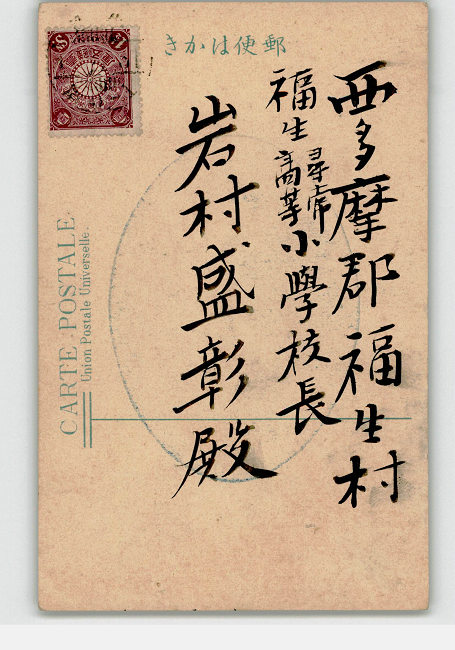 きかは便郵
西多摩郡福生村
福生尋常高等小學校長
岩村盛彰殿
CARTE POSTALE.
Union Postale Universelle.